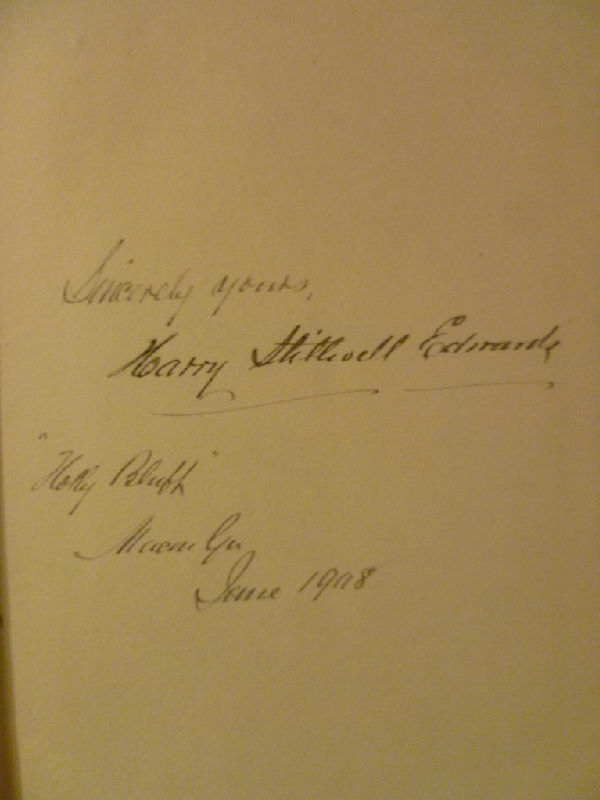 Sincerely yours,
Harry Stillwell Edwards
"Holly Bluff"
Macon Ga
June 1908